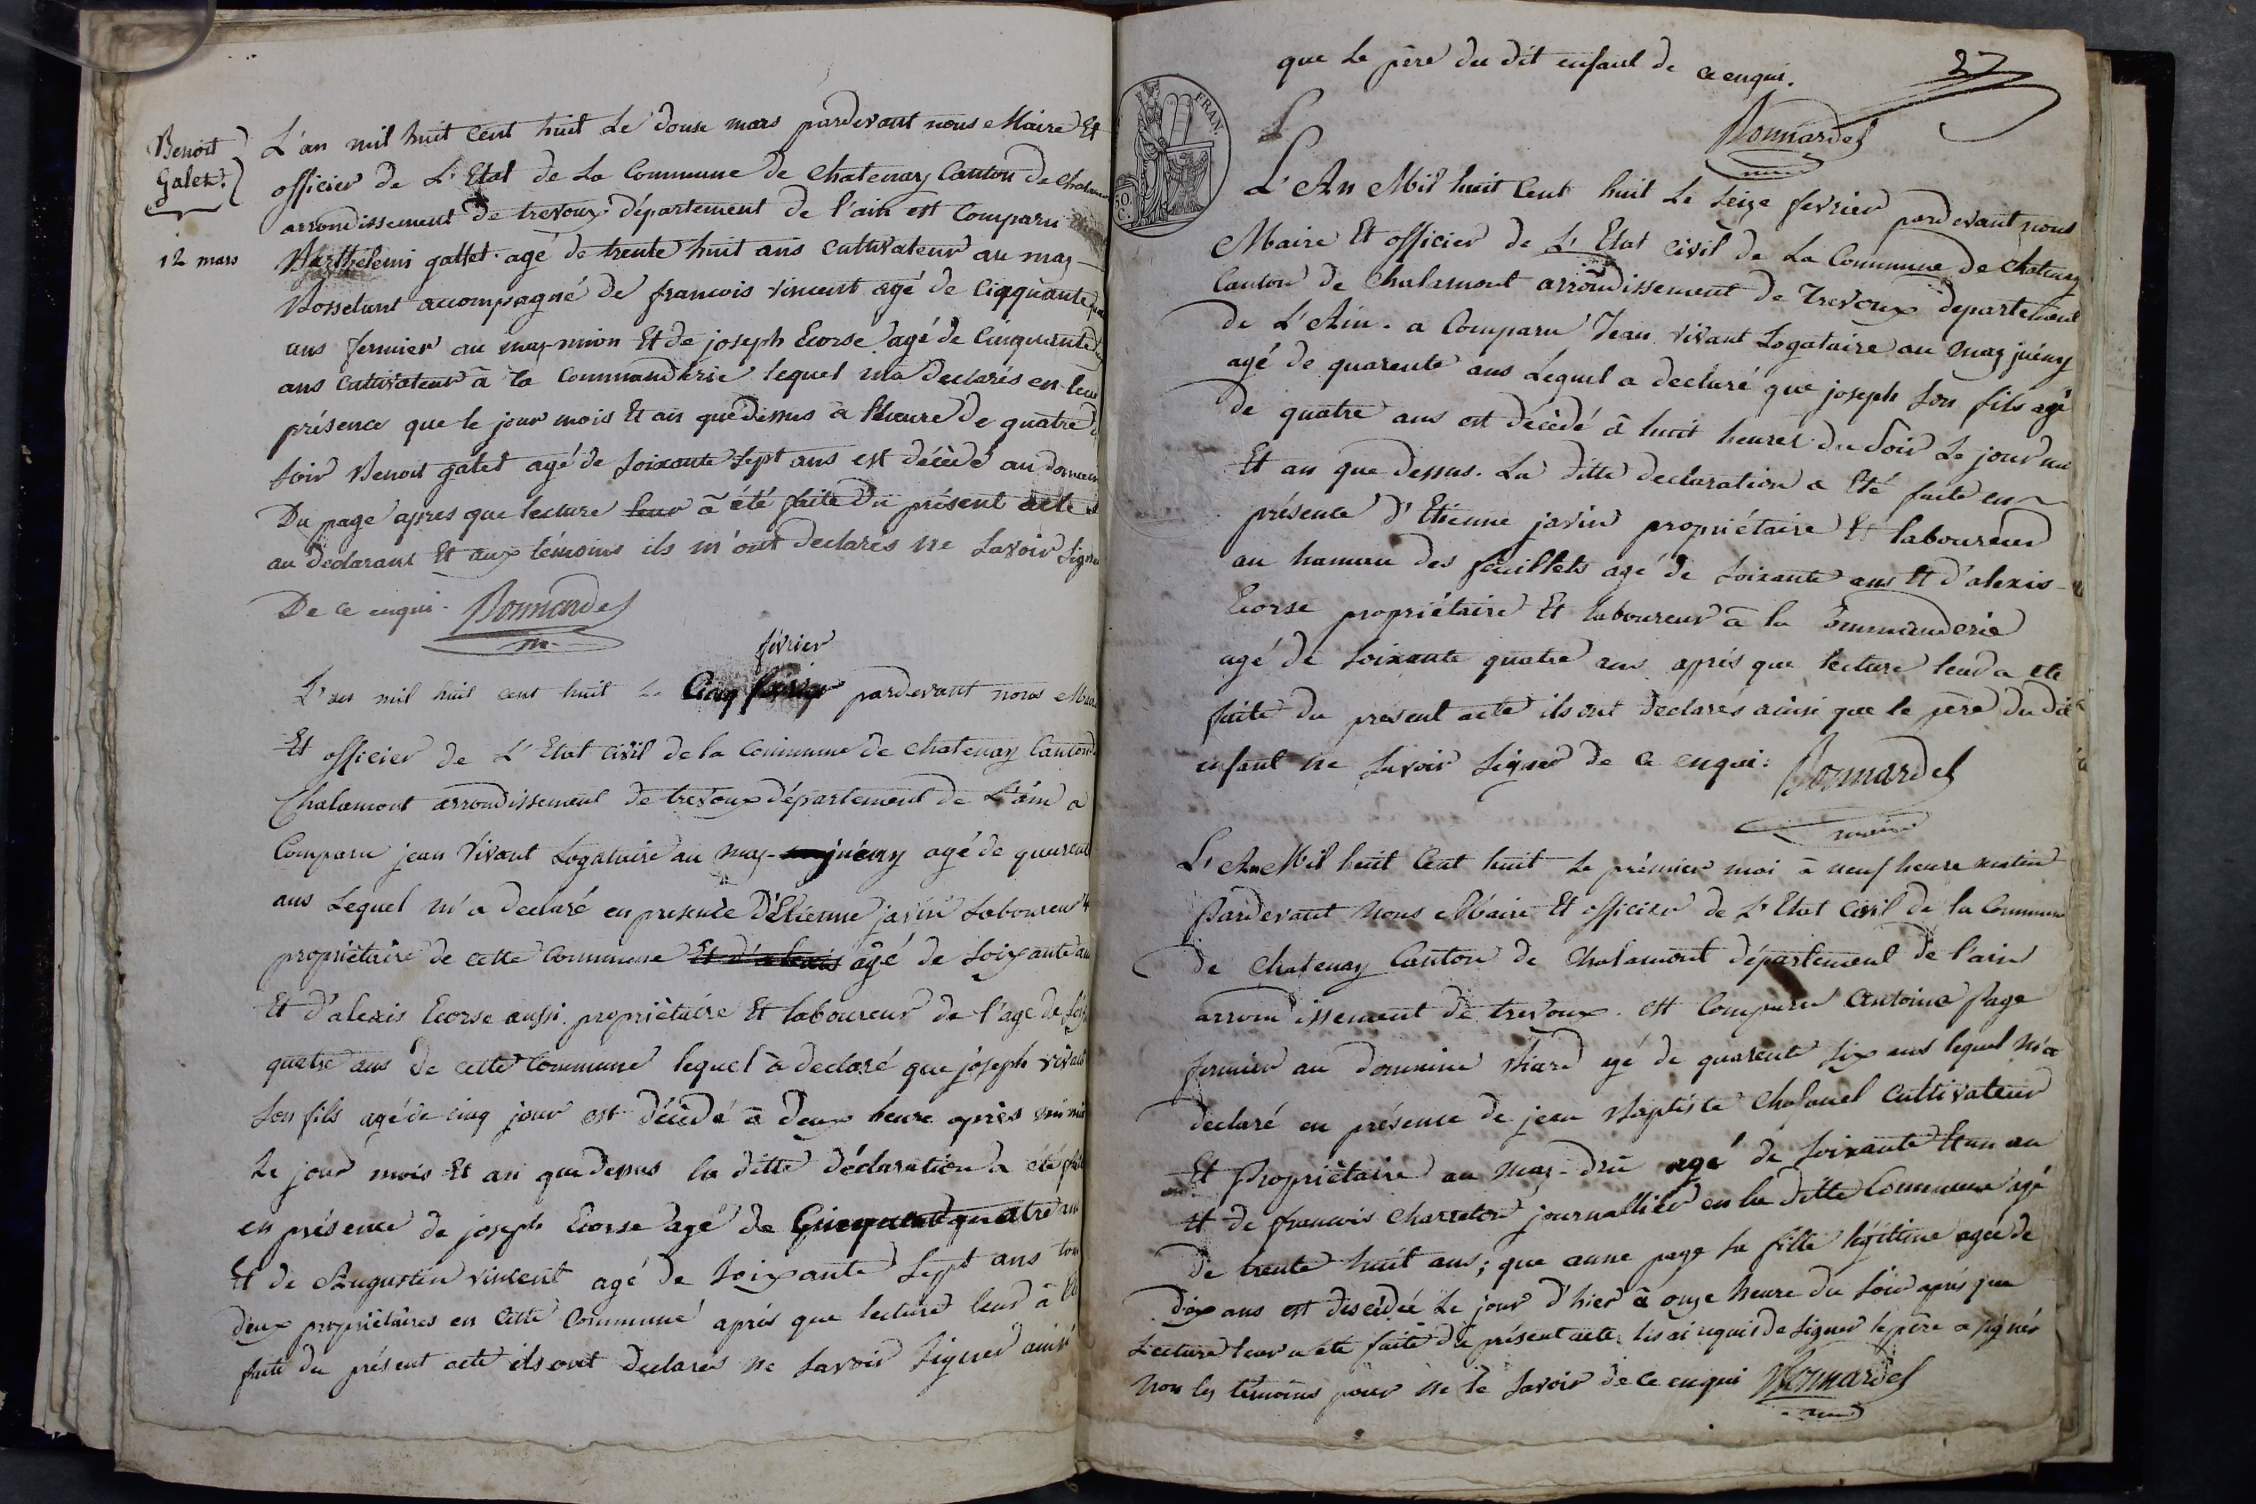 Benoit
Galet
12 mars
L'an mil huit cent huit Le douse mars pardevant nous Maire Et
officier de L'Etat de La Commune de chatenay Canton de
arrondissement de trevoux département de l'ain est Comparu
Barthelemi gallet agé de trente huit ans cultivateur au mas
Rosselant accompagné de francois vincent agé de Cinquante
ans fermier au mas-mion Et de joseph Ecorse agé de Cinquante
ans cultivateur à la Commanderie lequel ma declarés en leur
présence que le jour mois Et an que dessus à lheure de quatre
soir Benoit galet agé de soixante sept ans est décèdé au
Du page apres que lecture leur à été faite du présent acte
au declarant Et aux témoins ils m'ont declarés ne savoir
De ce enqui. Bonnardel
février
L'an mil huit cent huit Le Cinq pardevant nous
Et officier de L'Etat civil de la Commune de chatenay Canton
Chalamont arrondissement de trevoux département de L'ain a
Comparu jean Vivant Logataire au mas- juény agé de quarente
ans Lequel m'a declaré en presence D'Etienne javin Laboureur
propriétaire de cette Commune Et d'alexis agé de soixante
Et d'alexis Ecorse aussi propriètaire Et laboureur de l'age de
quatre ans de cette Commune lequel à declaré que joseph vivant
son fils agé de cinq jour est décèdé à deux heure après
Le jour mois Et an que dessus la ditte déclaration a été
en présence de joseph Ecorse agé de Cinquante quatre ans
Et de Augustin vincent agé de soixante sept ans
deux propriètaires en cette Commune après que lecture leur à
faite du présent acte ils ont declares ne savoir signer
que Le père du dit enfant de ce enqui.
27
Bonnardel
FRAN.
L'An Mil huit Cent huit Le seize fevrier pardevant nous
Maire Et officier de L'Etat civil de La Commune de chatenay
Canton de Chalamont arrondissement de Trevoux departement
de L'Ain. a Comparu Jean vivant Logataire au mas juény
agé de quarente ans Lequel a declaré que joseph son fils agé
de quatre ans est décèdé à huit heures du soir Le jour
Et an que dessus. La ditte declaration a Eté faite en
présence d'Etienne javin propriétaire Et laboureur
au hameau des feuillets agé de soixante ans Et d'alexis
Ecorse propriétaire Et laboureur à la Commanderie
agé de soixante quatre ans après que lecture leur a ete
faite du present acte ils ont declares ainsi que le père du dit
enfant ne savoir signer de ce enqui: Bonnardel
maire
L'An Mil huit Cent huit Le prémier mai à neuf heure matin
Pardevant nous Maire Et officier de L'Etat civil de la Commune
de chatenay Canton de chalamont département de l'ain
arrondissement de trevoux. est Comparu Antoine Page
fermier au domaine agé de quarente six ans lequel m'a
declaré en présence de jean Baptiste cultivateur
Et Propriètaire au mas-dru agé de soixante Et un an
Et de francois Charreton journallier en la ditte Commune agé
de trente huit ans; que anne page sa fille légitime agée de
dix ans est descédée Le jour d'hier à onze heure du soir après que
Lecture leur a été faite du présent acte les ai requis de signer le père a signér
non les témoins pour ne le savoir de ce enqui Bonnardel